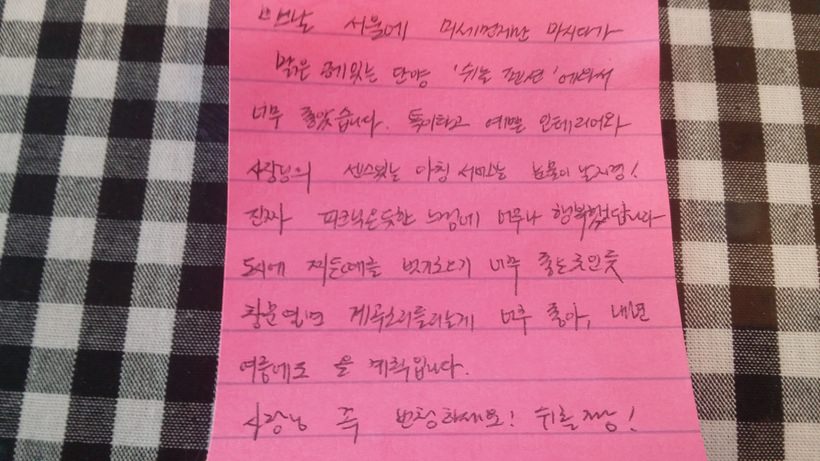 서울에 미세먼지만 마시다가
맑은 단양 '쉬놀 펜션'에와서
너무 좋았습니다. 특이하고 예쁜 인테리어와
사장님의 센스있는 아침 서비스는 눈물이 날지경!
진짜 피크닉온듯한 느낌에 너무나 행복했답니다
도시에 찌든때를 벗기오기 너무 좋는곳인듯
창문열면 계곡소리들리는게 너무 좋아, 내년
여름에도 올 계획입니다.
사장님 꼭 번창하세요! 짱!